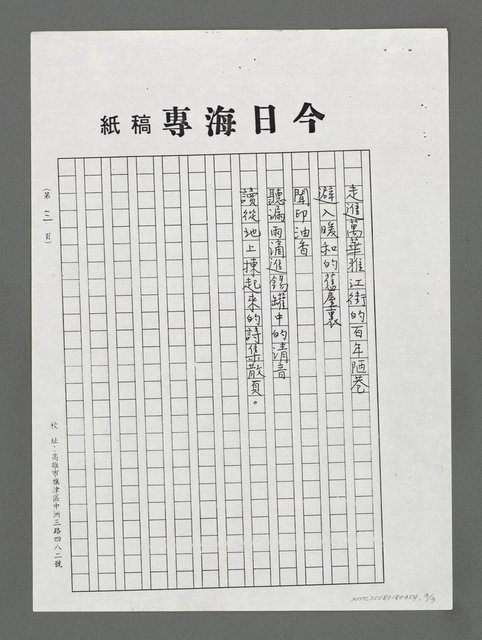 今日海專稿紙
走進萬華雅江街的百年陋巷
避入暖和的舊屋裏
聞印油香
聽漏雨滴進錫罐中的清音
讀從地上揀起來的詩集散頁。
(第三頁)
校址:高雄市旗津區中洲三路四八二號
NMTL20080180454, 3/3